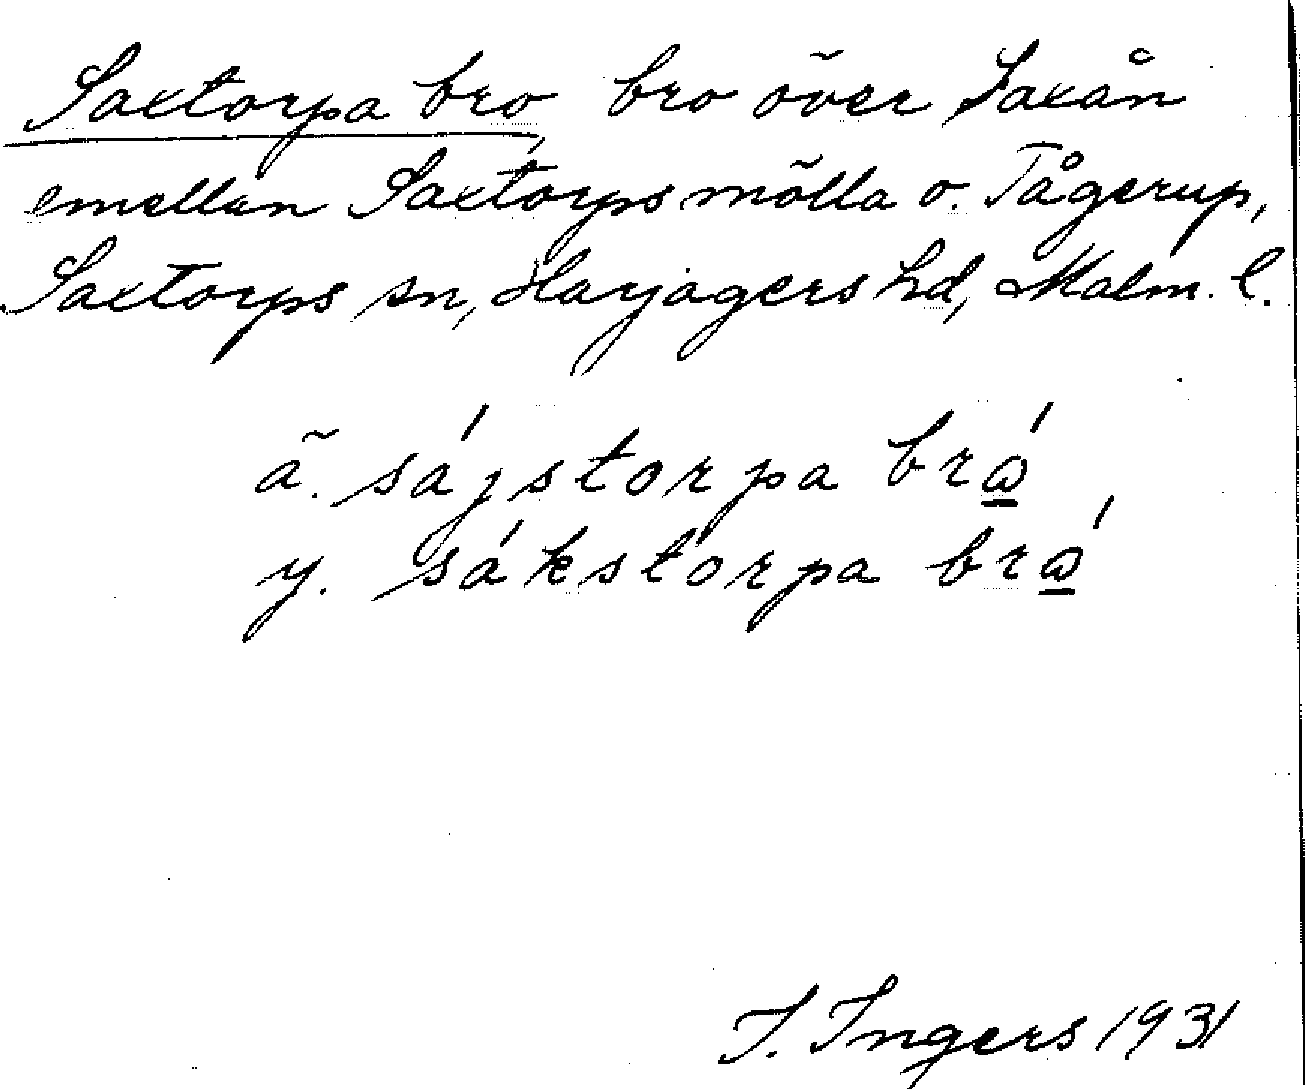 Saxtorpa bro, bro över Saxån
emellan Saxtorps mölla o. Tågerup,
Saxtorps sn, Harjagers hd, Malm. l.
ä. sájstorpa brώ̲
y. sákstòrpa brώ̲
I. Ingers 1931